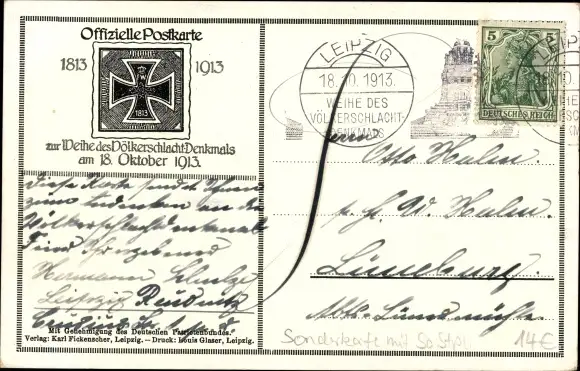 Offizielle Postkarte
1813 1913
1813
zur Weihe des Völkerschlacht-Denkmals
am 18. Oktober 1913.
LEIPZIG
18.10.1913.
WEIHE DES
VÖLKERSCHLACHT-
DENKMALS
5 5
DEUTSCHES REICH
Herrn
Otto Hahn.
Lüneburg.
Diese Karte sendet Ihnen
zum Andenken an die
Völkerschlachtdenkmal
Feier Ihr ergebener
Hermann Schulze
Leipzig Reudnitz
Mit Genehmigung des Deutschen Patriotenbundes.
Verlag: Karl Fickenscher, Leipzig. — Druck: Louis Glaser, Leipzig.
Sonderkarte mit So Stpl
14€